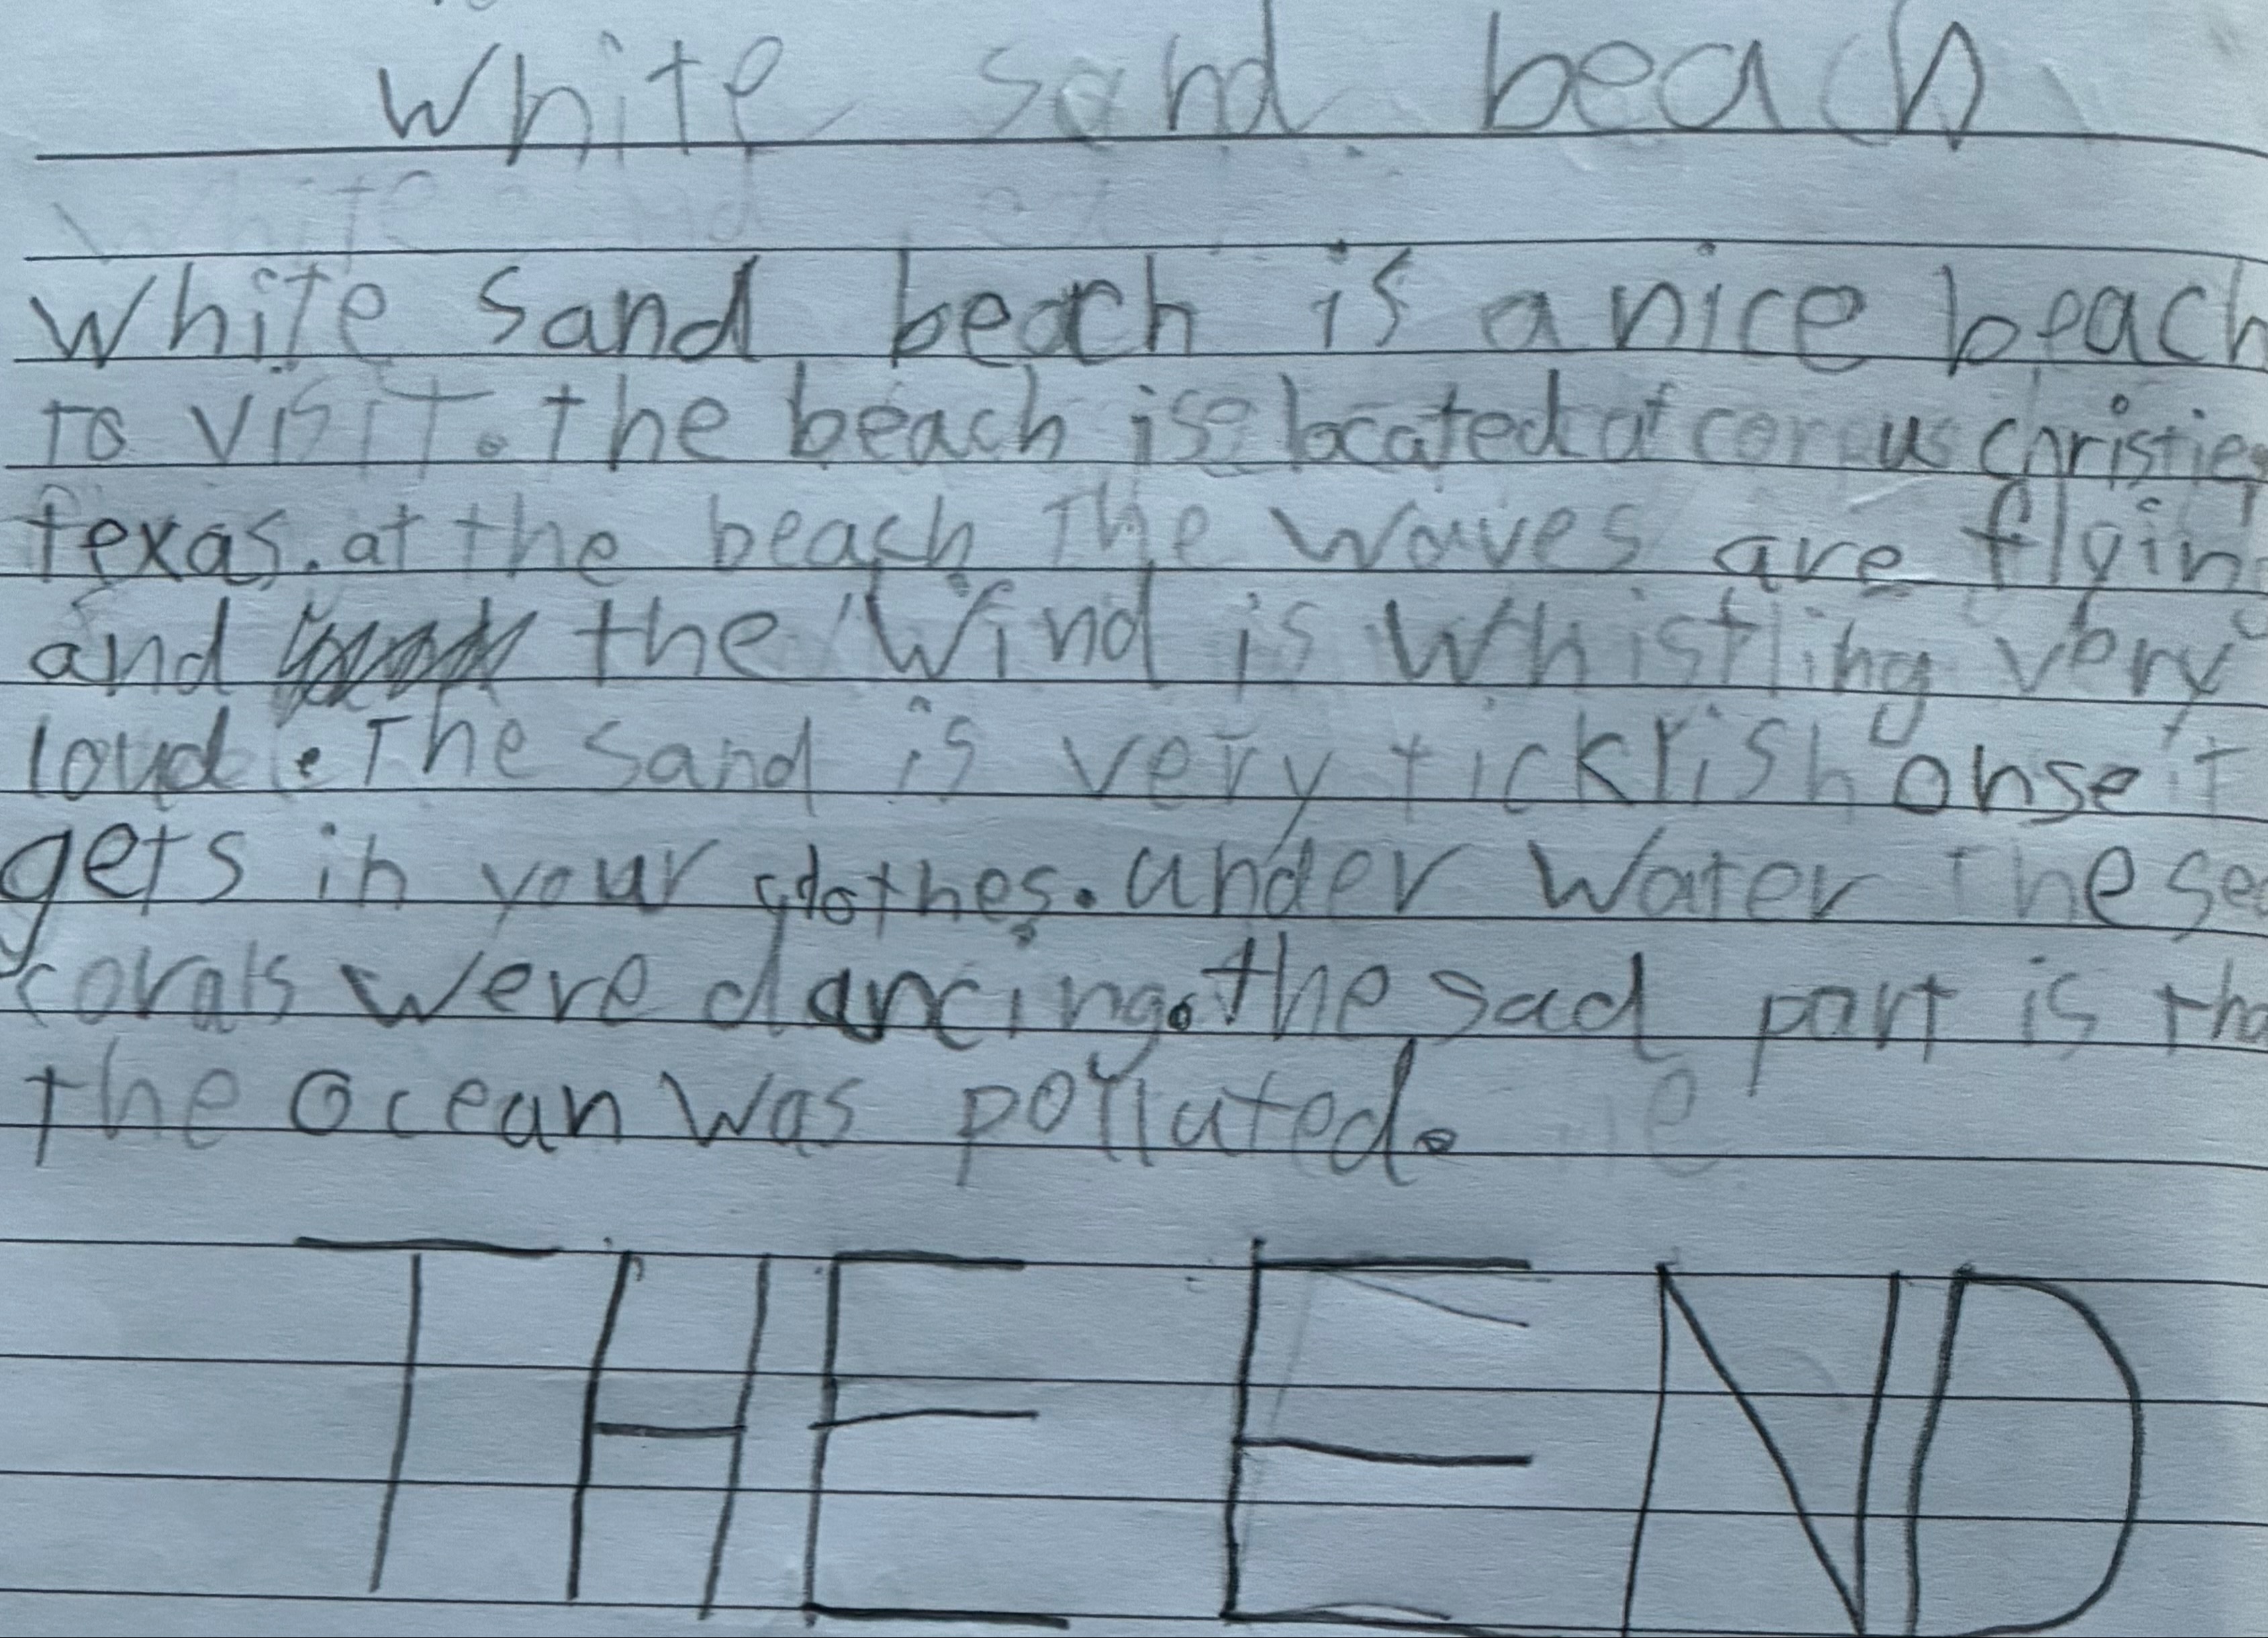 white sand beach
white sand beach is a nice beach
to visit. the beach is located at corpus christie
texas. at the beach The waves are flyin
and the wind is whistling very
loud. The sand is very ticklish onse it
gets in your clothes. under water the sea
corals were dancing. the sad part is tha
the ocean was polluted.
THE END